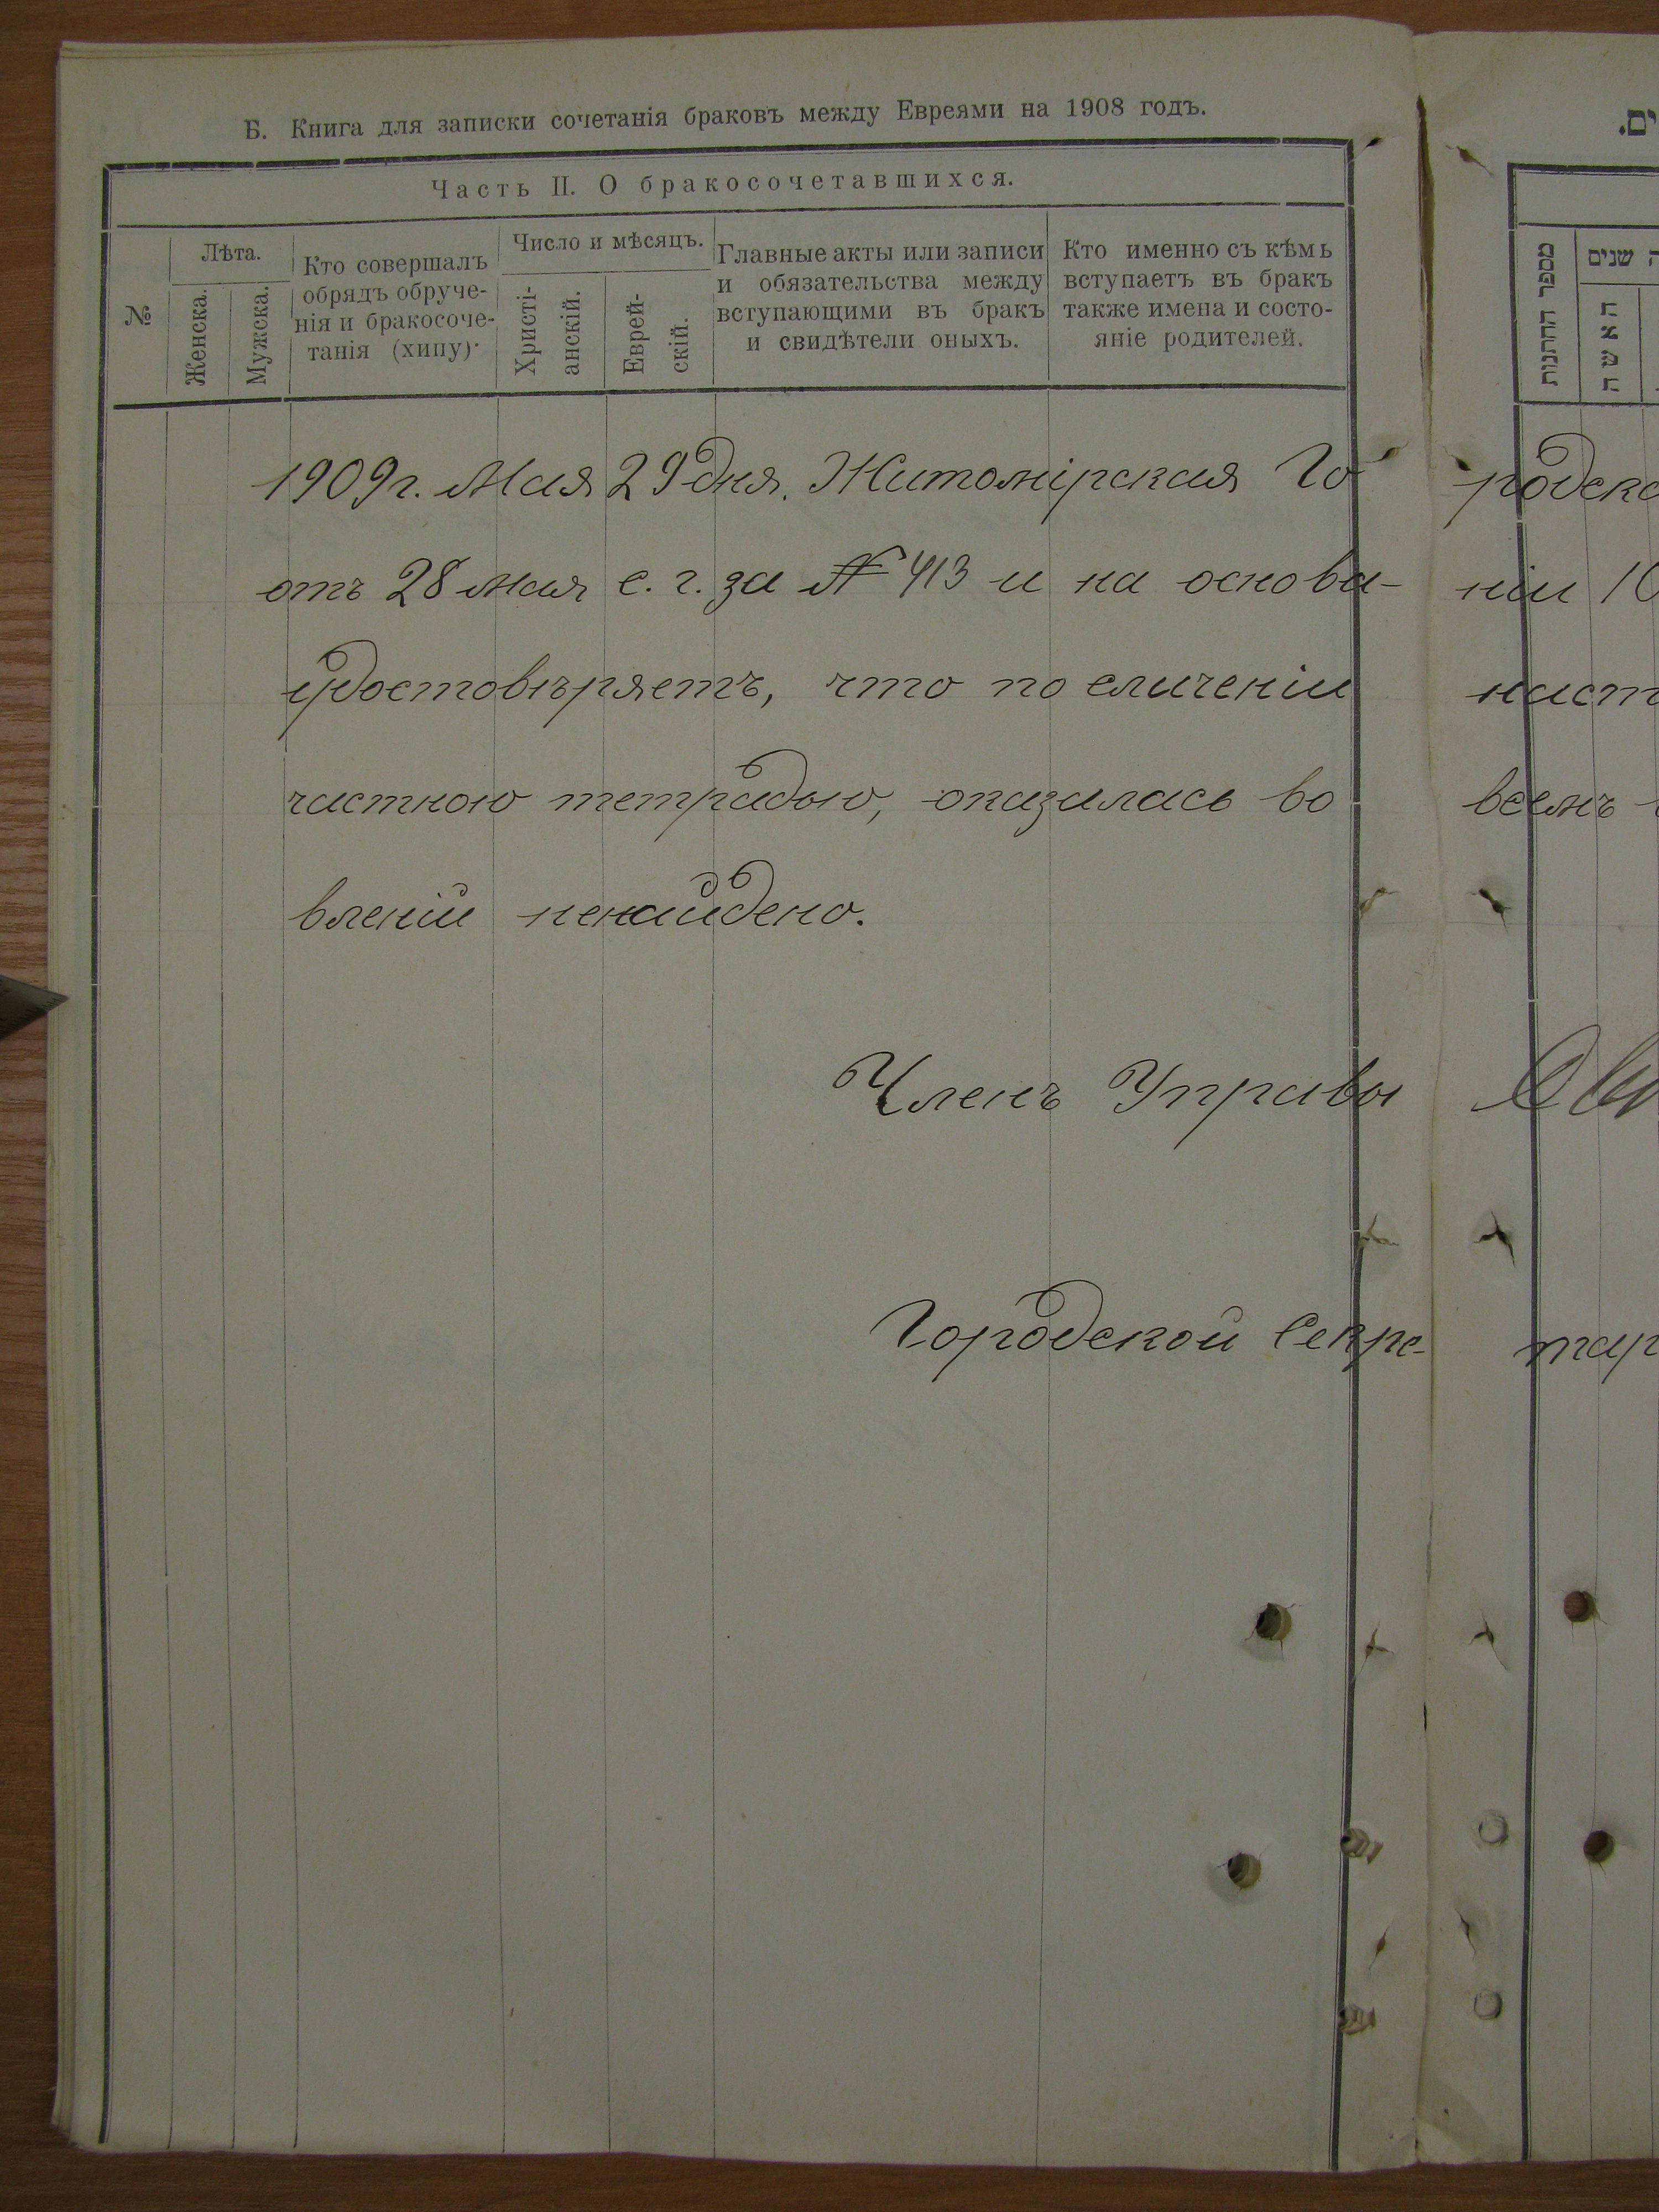 Б. Книга для записки сочетанія браковъ между Евреями на 1908 годъ.
Часть II. О бракосочетавшихся.
№
Лѣта.
Женска.
Мужска.
Кто совершалъ
обрядъ обруче-
нія и бракосоче-
танія (хипу).
Число и мѣсяцъ.
Христі-
анскій.
Еврей-
скій.
Главные акты или записи
и обязательства между
вступающими въ бракъ
и свидѣтели оныхъ.
Кто именно съ кѣмъ
вступаетъ въ бракъ
также имена и состо-
яніе родителей.
1909 г. Мая 29 дня. Житомірская Го
отъ 28 мая с. г. за № 413 и на основа-
удостовѣряетъ, что по сличеніи
частною тетрадью, оказалась во
вленій ненайдено.
Членъ Управы
Городской Секре-
ים.
מספר החתנות
שנים
האשה
родско
ніи 10
наст
всемъ
тар